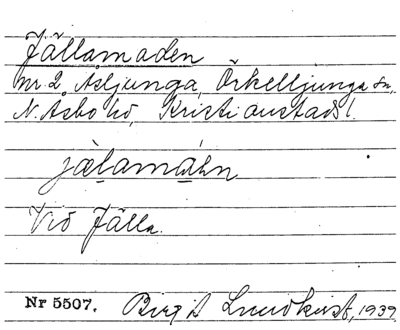 Fjällamaden
nr. 2, Åsljunga, Örkelljunga sn,
N. Åsbo hd, Kristianstads l.
Vid Fjälla.
Nr 5507. Birgit Lundkvist, 1939